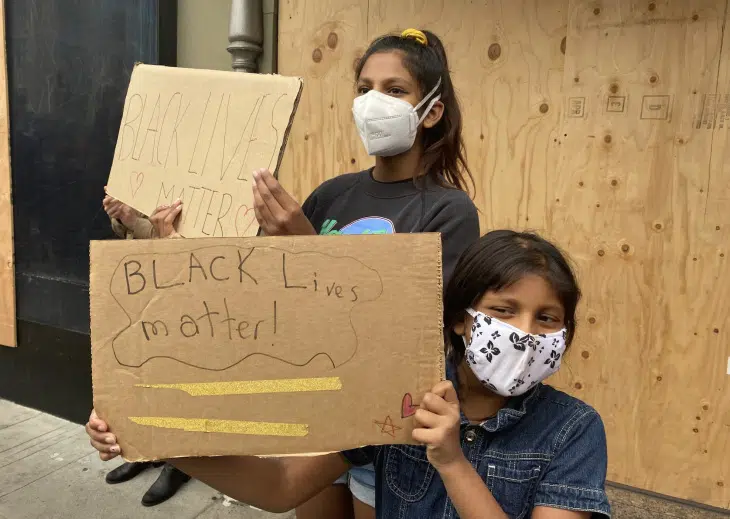 BLACK LIVES
MATTER
BLACK Lives
matter!